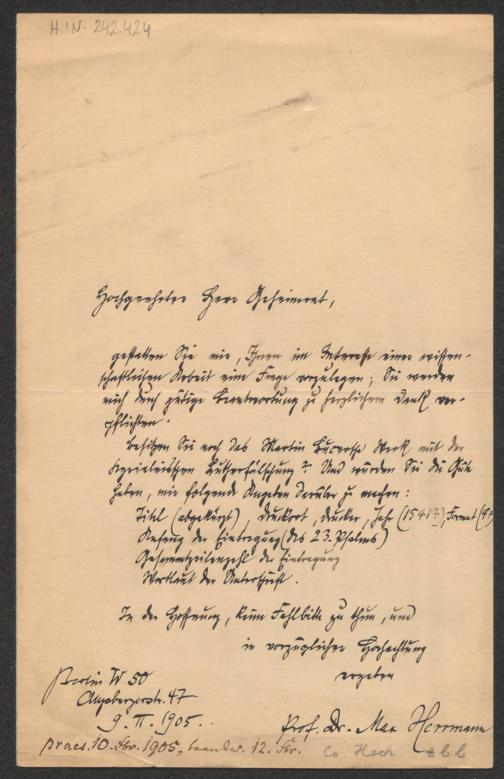 H.I.N. 242.424
Hochgeehrter Herr Geheimrat,
gestatten Sie mir, Ihnen im Interesse einer wissen-
schaftlichen Arbeit eine Frage vorzulegen; Sie werden
mich durch gütige Beantwortung zu herzlichem Dank ver-
pflichten.
Besitzen Sie noch das Martin Bucersche Werk mit der
Kyrieleisschen Lutherfälschung? Und würden Sie die Güte
haben, mir folgende Angaben darüber zu machen:
Titel (abgekürzt), Druckort, Drucker, Jahr (1541?), Format (
Anfang der Eintragung (des 23. Psalms)
Gesammtzeilenzahl der Eintragung
Wortlaut der Unterschrift.
In der Hoffnung, keine Fehlbitte zu thun, und
in vorzüglicher Hochachtung
ergeben
Berlin W 50
Augsburgerstr. 47
9. II. 1905.
Prof. Dr. Max Herrmann
praes. 10. Fbr. 1905, beantw. 12. Fbr.